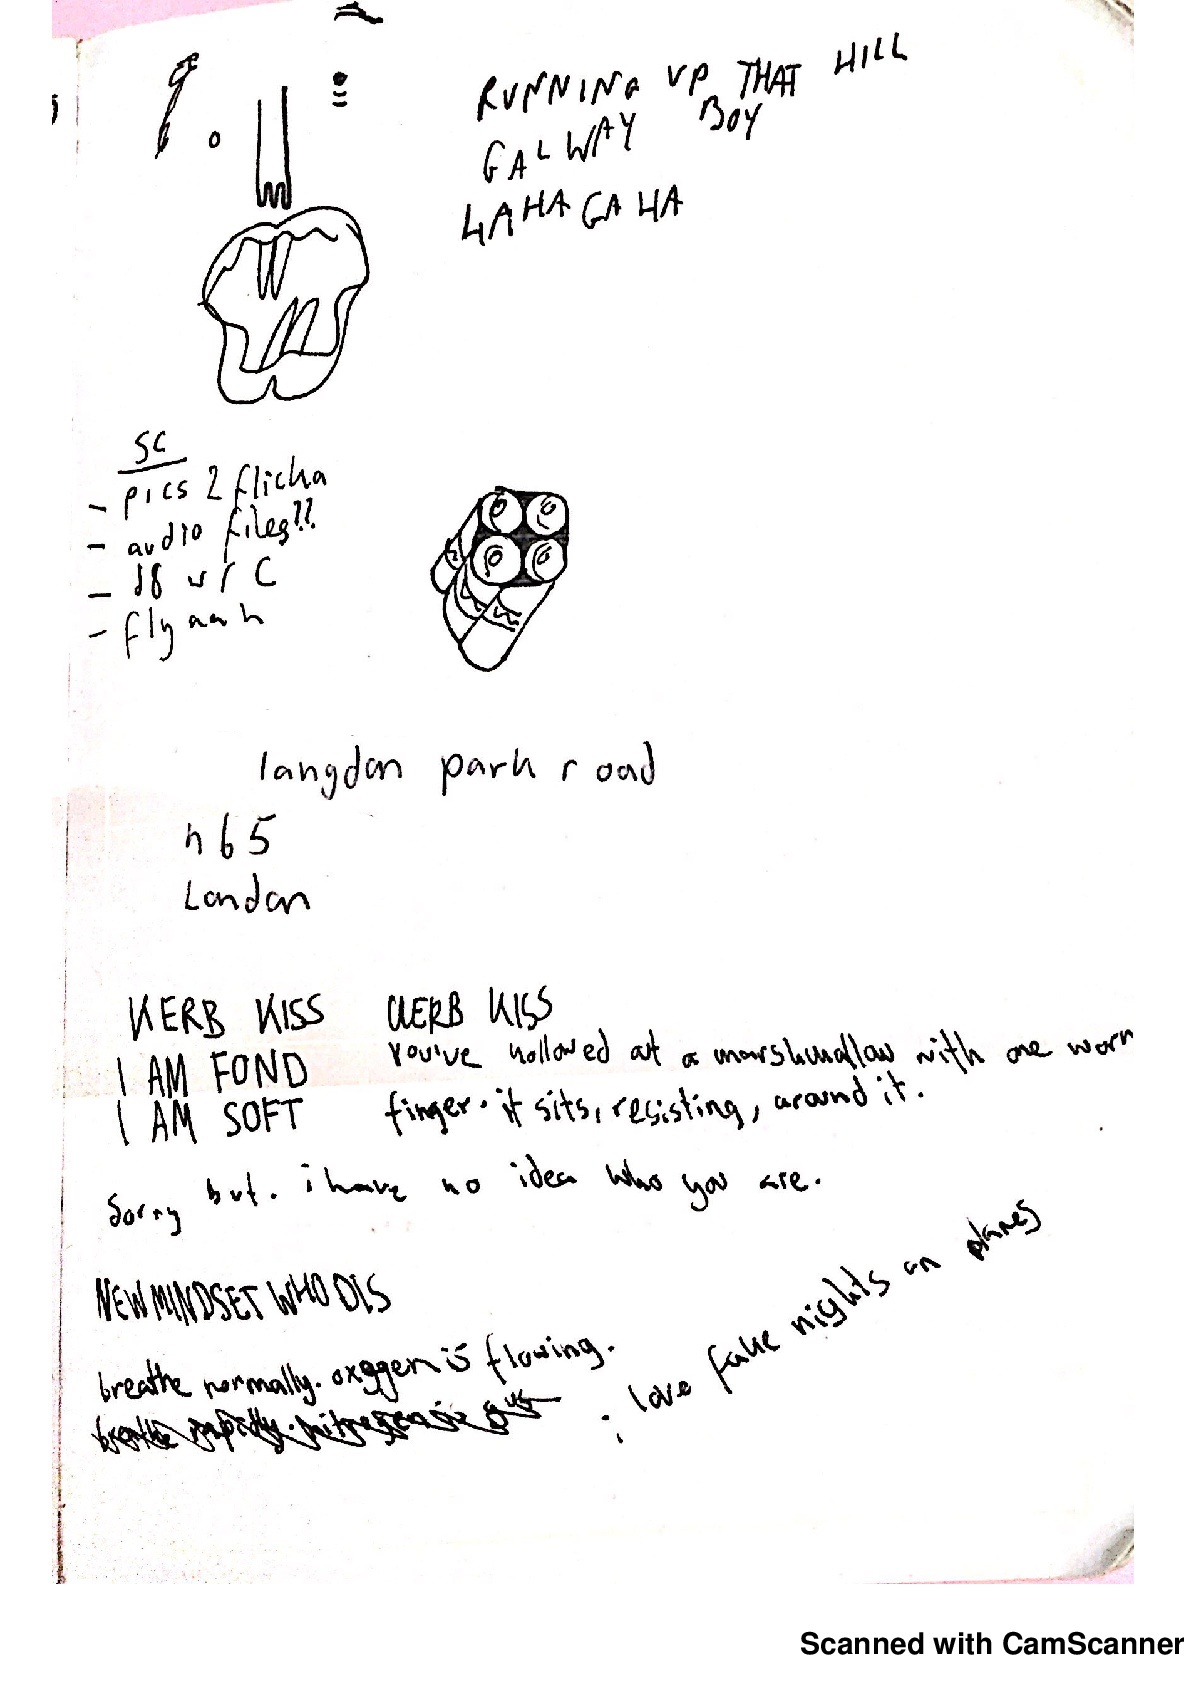 RUNNING UP THAT HILL
GALWAY BOY
HAHAGAHA
SC
- pics 2 flicka
- audio files??
- d8 w/ C
- fly aah
langdon park road
n65
London
KERB KISS
I AM FOND
I AM SOFT
KERB KISS
You've hollowed at a marshmallow with one worn
finger. it sits, resisting, around it.
Sorry but. i have no idea who you are.
NEW MINDSET WHO DIS
breathe normally. oxygen is flowing.
breathe rapidly. nitrogen is out
i love fake nights on planes
Scanned with CamScanner